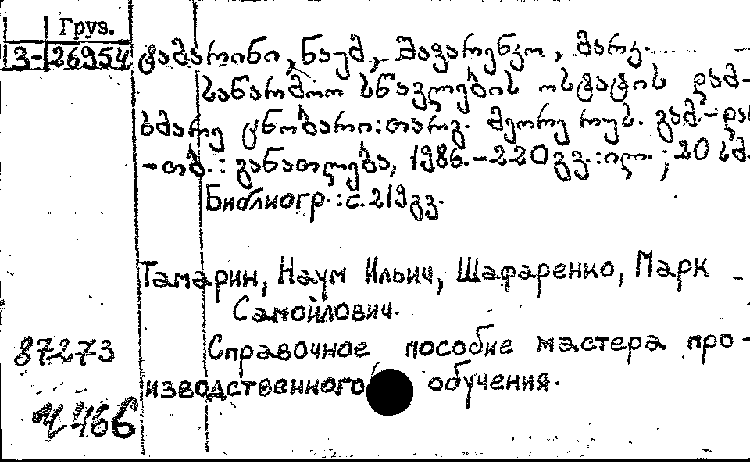 Груз.
3-26954
ტამარინი, ნაუმ, შაფარენკო, მარკ.
საწარმოო სწავლების ოსტატის დამ-
ხმარე ცნობარი: თარგ. მეორე რუს. გამ.-დან
-თბ.: განათლება, 1986.-220გვ.: ილ.; 20 სმ.
Библиогр.: с. 219გვ.
Тамарин, Наум Ильич, Шафаренко, Марк
Самойлович.
87273 Справочное пособие мастера про-
изводственного обучения.
Ч 466